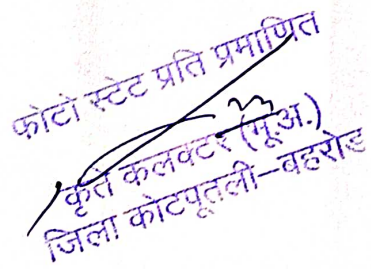 फोटो स्टेट प्रति प्रमाणित
कृते कलक्टर (भू.अ.)
जिला कोटपूतली–बहरोड